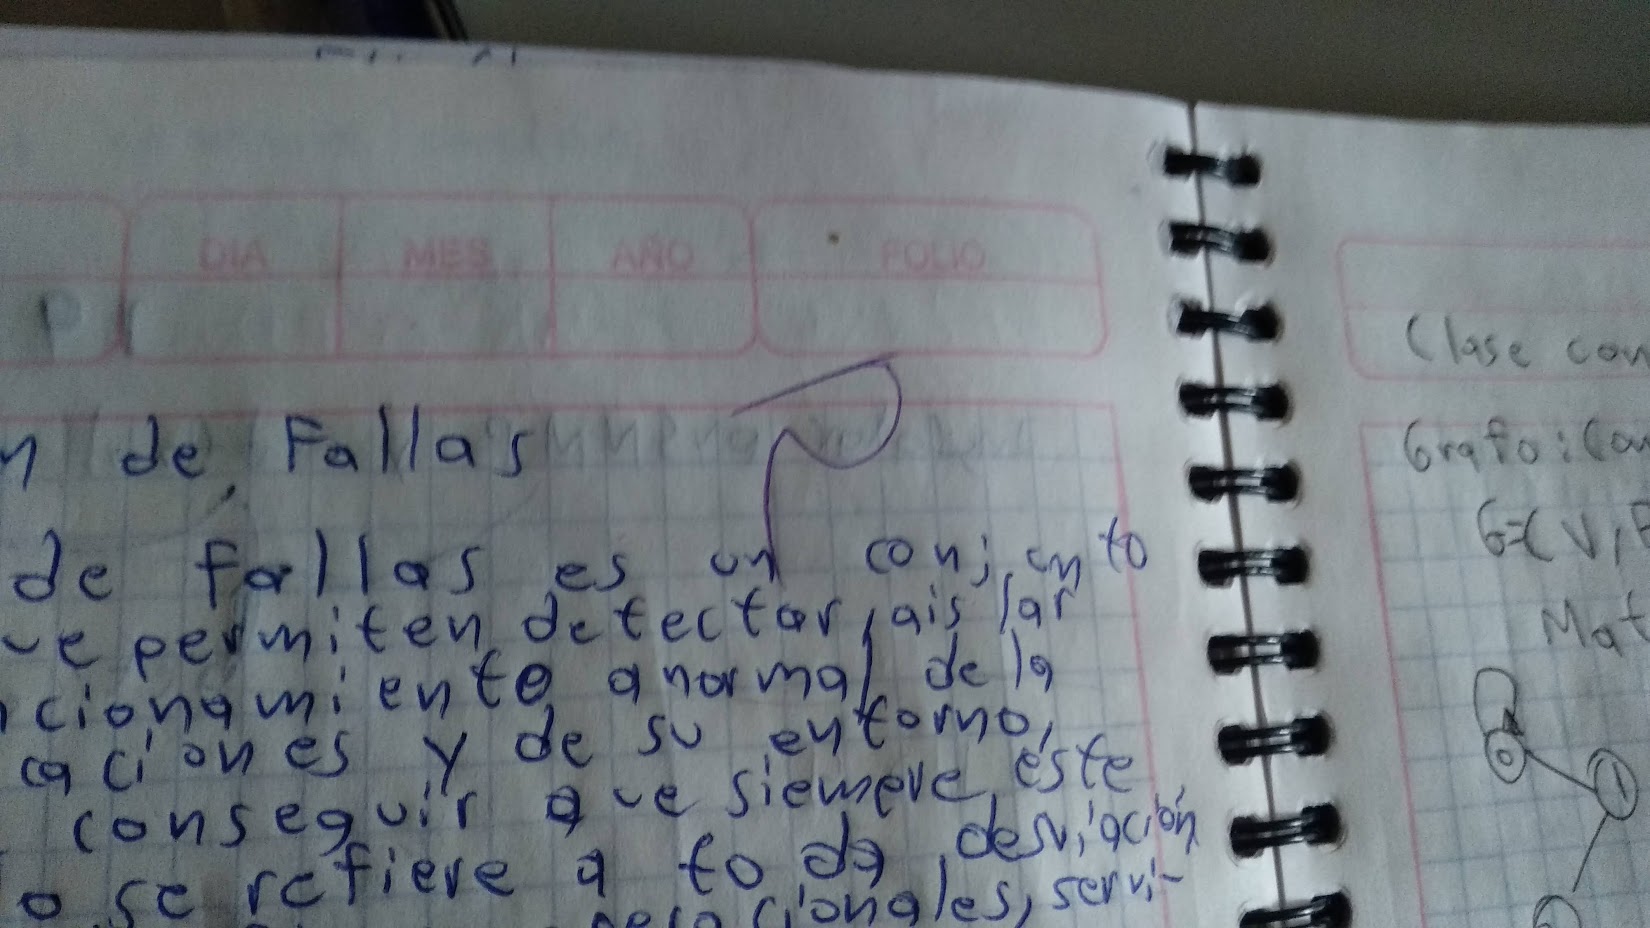 DIA MES AÑO FOLIO
n de Fallas
de fallas es un conjunto
ve permiten detectar, aislar
cionamiento anormal de la
caciones y de su entorno,
conseguir que siempre este
o se refiere a toda desviación
cionales, servi-
Clase con
Grafo: Con
G=(V,E
Mat
0
1